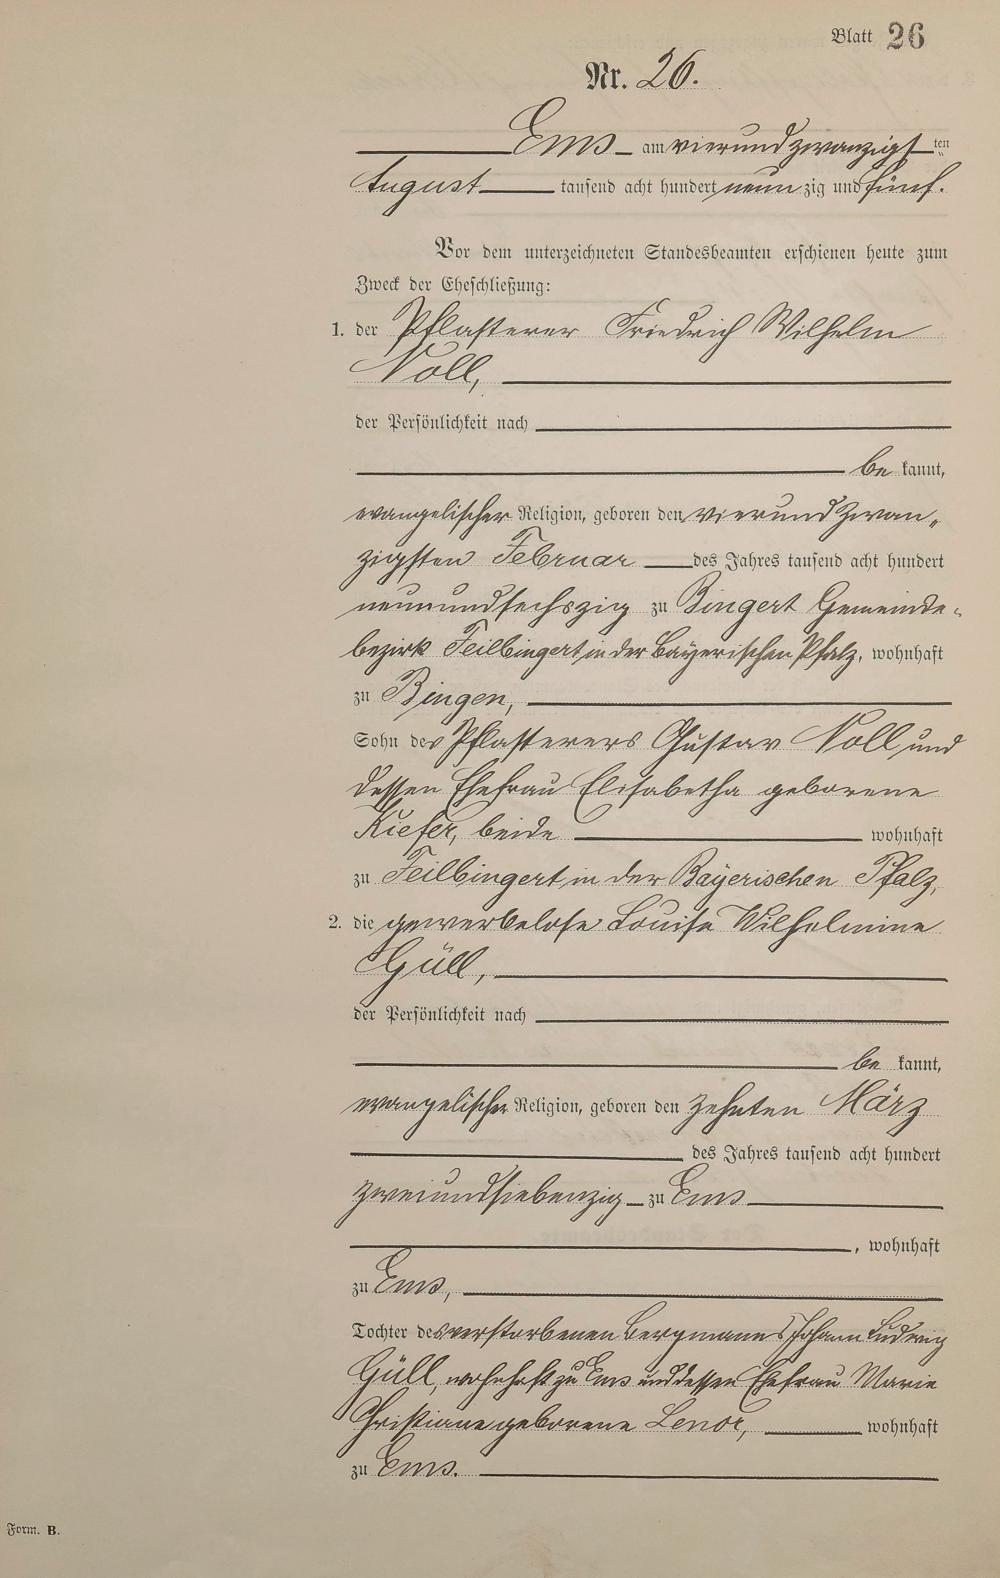 Blatt 26
Nr. 26.
Ems am vierundzwanzigsten
August tausend acht hundert neunzig und fünf.
Vor dem unterzeichneten Standesbeamten erschienen heute zum
Zweck der Eheschließung:
1. der Pflasterer Friedrich Wilhelm
Noll,
der Persönlichkeit nach
bekannt,
evangelischer Religion, geboren den vierundzwan„
zigsten Februar des Jahres tausend acht hundert
neunundsechszig zu Bingert Gemeinde„
bezirk Feilbingert in der Bayerischen Pfalz, wohnhaft
zu Bingen,
Sohn des Pflasterers Gustav Noll und
dessen Ehefrau Elisabetha geborene
Kiefer, beide wohnhaft
zu Feilbingert in der Bayerischen Pfalz,
2. die gewerbelose Louise Wilhelmine
Güll,
der Persönlichkeit nach
bekannt,
evangelischer Religion, geboren den zehnten März
des Jahres tausend acht hundert
zweiundsiebenzig zu Ems
, wohnhaft
zu Ems,
Tochter des verstorbenen Bergmannes Johann Ludwig
Güll, wohnhaft zu Ems und dessen Ehefrau Marie
Christiane geborene Lenor, wohnhaft
zu Ems.
Form. B.